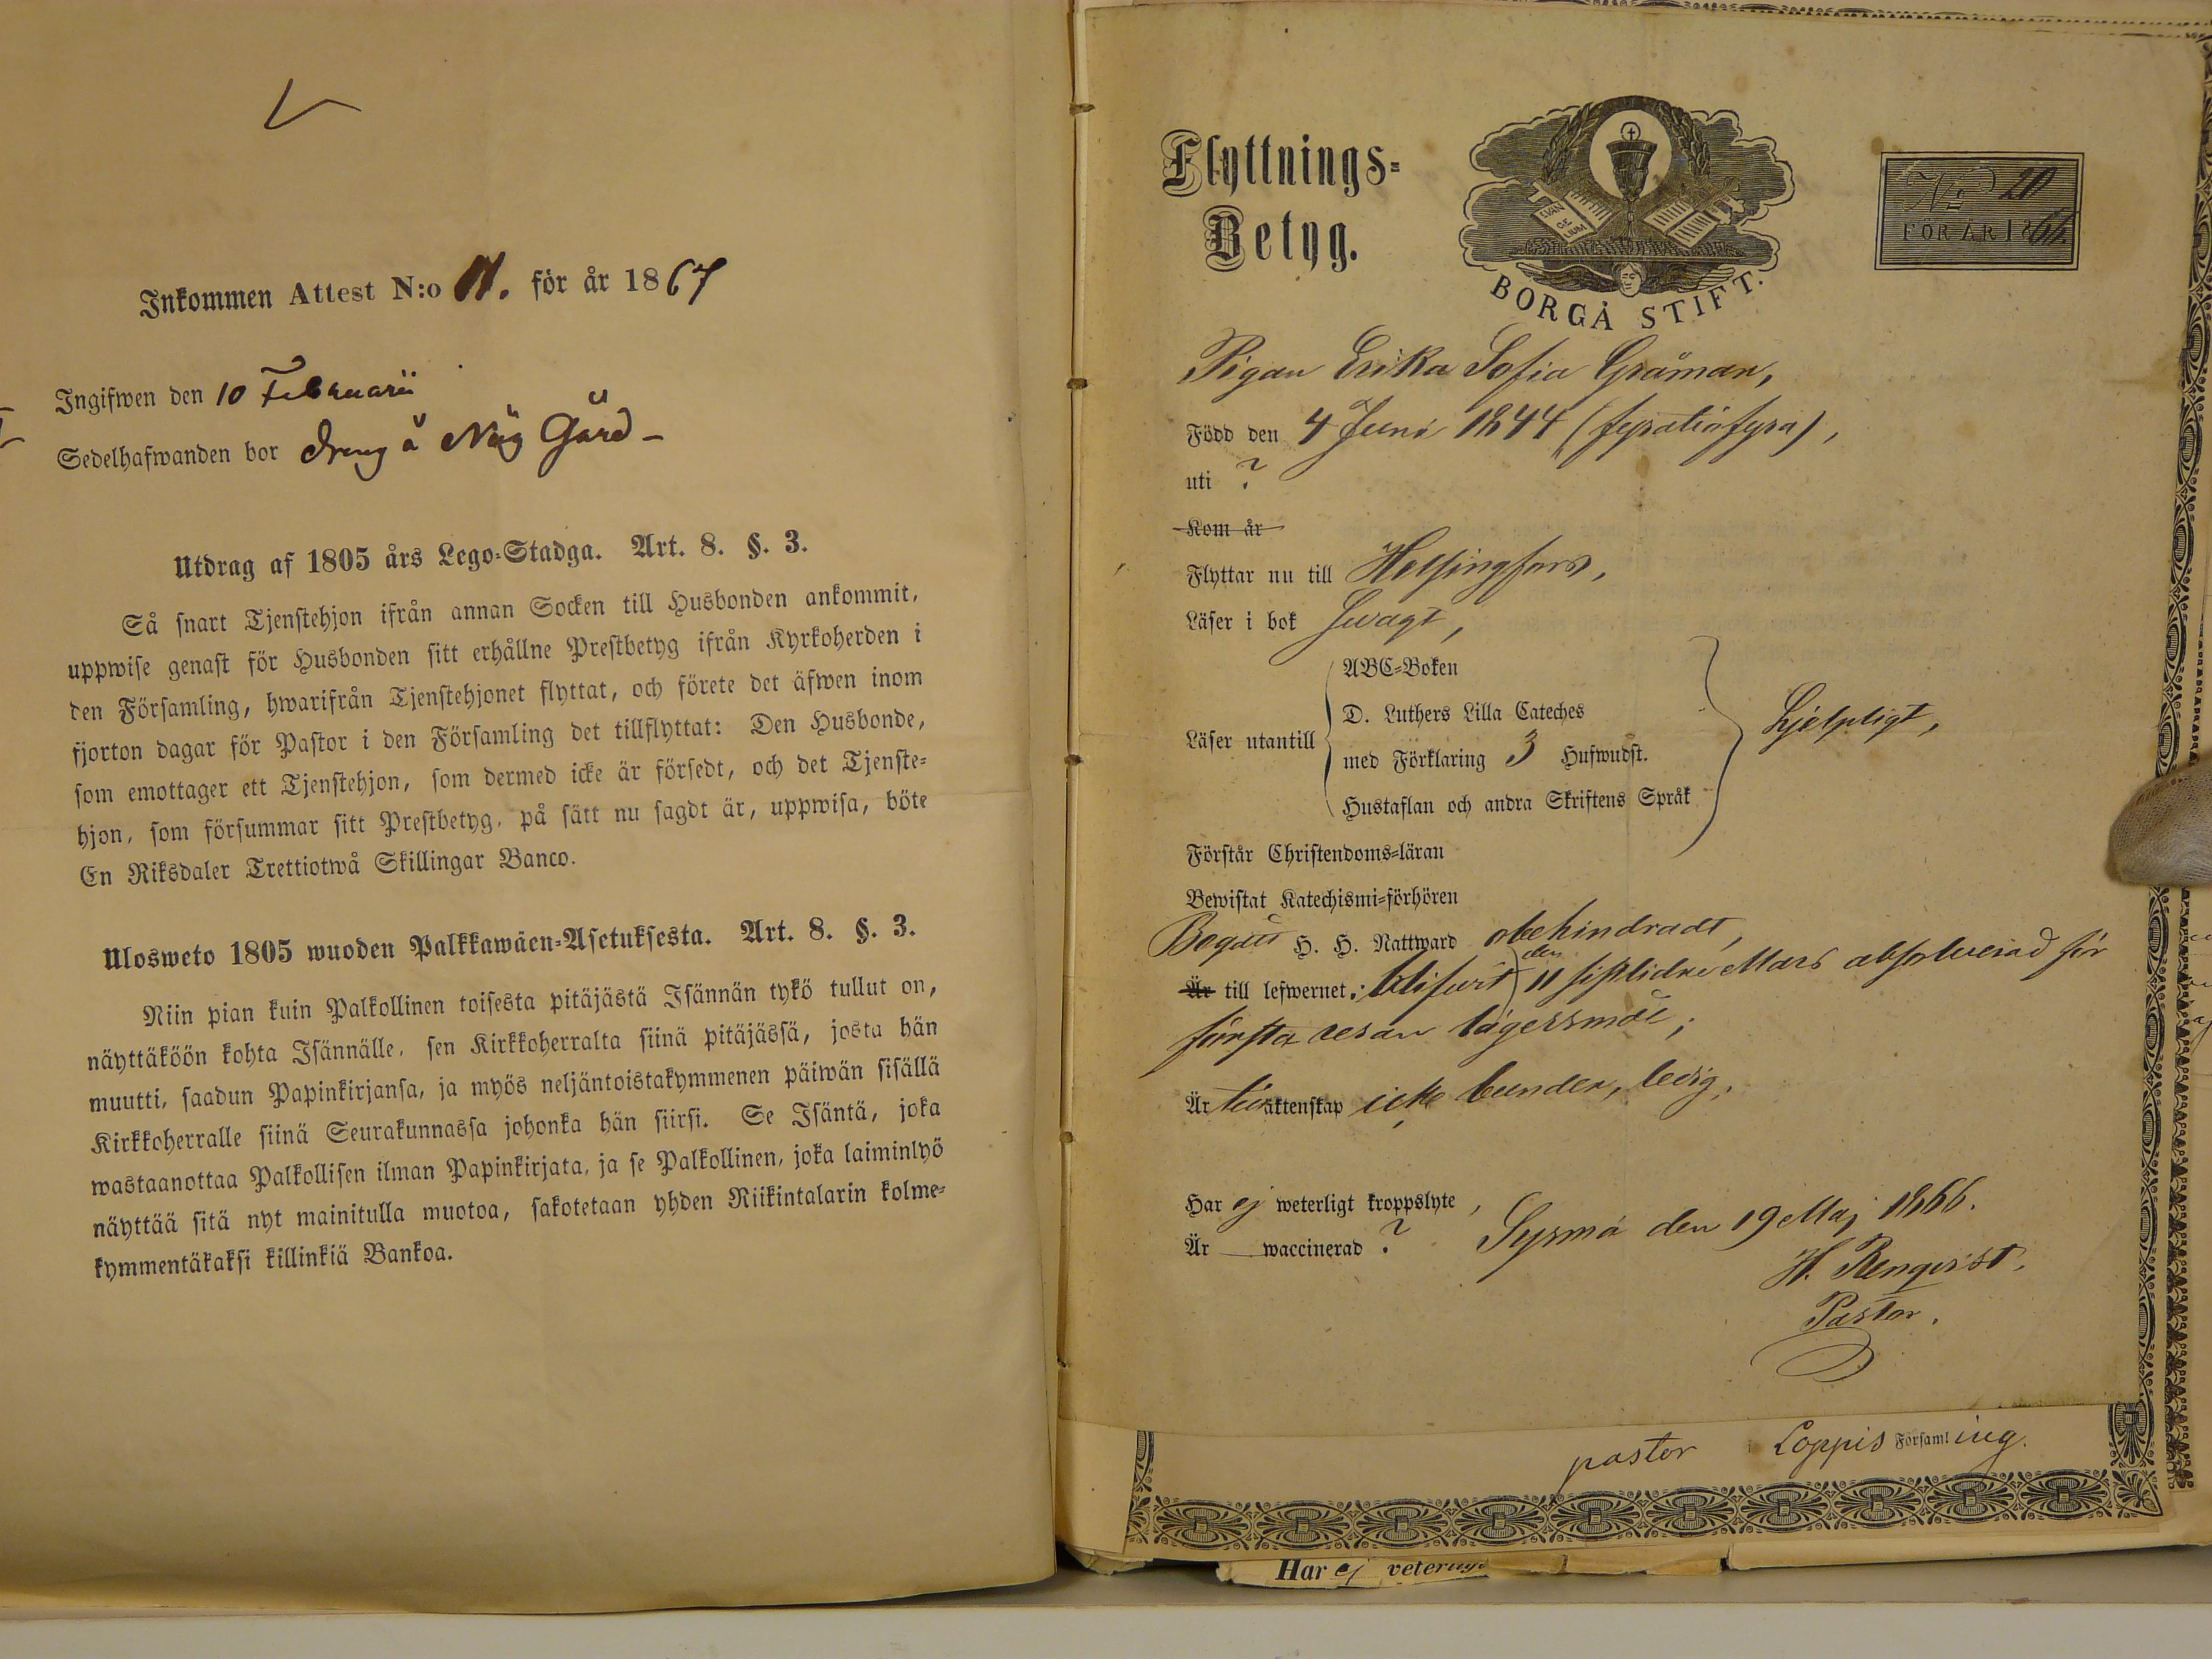 Inkommen Attest N:o 11. för år 1867
Ingifwen den 10 Februarii
Sedelhafwanden bor dreng å Nӱ Gård –
Utdrag af 1805 års Lego-Stadga. Art. 8. §. 3.
Så snart Tjenstehjon ifrån annan Socken till Husbonden ankommit,
uppwise genast för Husbonden sitt erhållne Prestbetyg ifrån Kyrkoherden i
den Församling, hwarifrån Tjenstehjonet flyttat, och förete det äfwen inom
fjorton dagar för Pastor i den Församling det tillflyttat: Den Husbonde,
som emottager ett Tjenstehjon, som dermed icke är försedt, och det Tjenste-
hjon, som försummar sitt Prestbetyg, på sätt nu sagdt är, uppwisa, böte
En Riksdaler Trettiotwå Skillingar Banco.
Ulosweto 1805 wuoden Palkkawäen-Asetuksesta. Art. 8. §. 3.
Niin pian kuin Palkollinen toisesta pitäjästä Isännän tykö tullut on,
näyttäköön kohta Isännälle, sen Kirkkoherralta siinä pitäjässä, josta hän
muutti, saadun Papinkirjansa, ja myös neljäntoistakymmenen päiwän sisällä
Kirkkoherralle siinä Seurakunnassa johonka hän siirsi. Se Isäntä, joka
wastaanottaa Palkollisen ilman Papinkirjata, ja se Palkollinen, joka laiminlyö
näyttää sitä nyt mainitulla muotoa, sakotetaan yhden Riikintalarin kolme-
kymmentäkaksi killinkiä Bankoa.
Flyttnings-
Betyg.
EVAN
GE
LIUM
BORGÅ STIFT.
No 20
FÖR ÅR 1866.
Pigan Erika Sofia Gråman,
Född den 4 Juni 1844 (fyratiofyra),
uti ?
Kom år
Flyttar nu till Helsingfors,
Läser i bok swagt,
ABC-Boken
D. Luthers Lilla Cateches
Läser utantill
med Förklaring 3 Hufwudst.
Hustaflan och andra Skriftens Språk
hjelpligt,
Förstår Christendoms-läran
Bewistat Katechismi-förhören
Begått H. H. Nattward obehindradt,
Är till lefwernet: blifwit den 11 sistlidne Mars absolverad för
första resan lägersmål;
Är till äktenskap icke bunden, ledig,
Har ej weterligt kroppslyte,
Är waccinerad ?
Sysmä den 19 Maj 1866.
H. Renqvist.
Pastor.
pastor i Loppis Församling.
Har ej veterlig